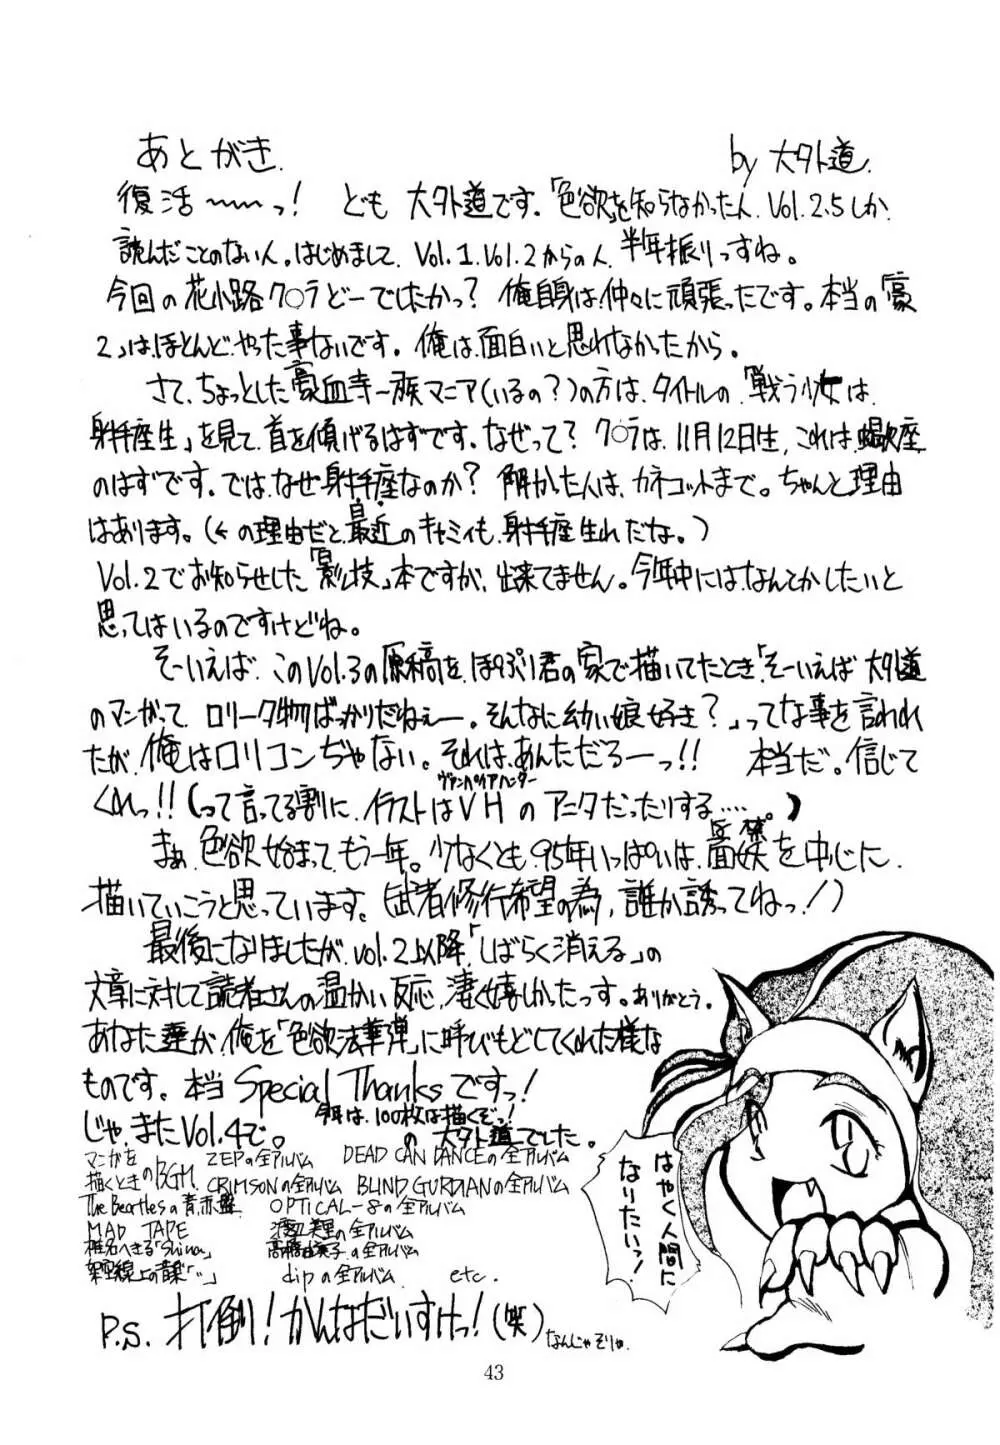 あとがき.
by 大外道.
復活〜〜〜っ! ども 大外道です。「色欲」を知らなかった人、Vol.2.5しか
読んだことのない人。はじめまして、Vol.1、Vol.2からの人、半年振りっすね。
今回の花小路ク○ラどーでしたかっ? 俺自身は、仲々に頑張ったです。本当の「豪
2」は、ほとんど、やった事ないです。俺は、面白いと思れなかったから。
さて、ちょっとした豪血寺一族マニア(いるの?)の方は、タイトルの「戦う少女は、
射手座生」を見て、首を傾げるはずです。なぜって? ク○ラは、11月12日生、これは、蠍座
のはずです。では、なぜ、射手座なのか? 解かった人は、カネコットまで。ちゃんと理由
はあります。(←の理由だと、最近のキャミィも、射手座生れだな。)
Vol.2でお知らせした「影技」本ですが、出来てません。今年中には、なんとかしたいと
思ってはいるのですけどね。
そーいえば、このVol.3の原稿を、ほぷり君の家で描いてたとき、「そーいえば 大外道
のマンガって、ロリータ物ばっかりだねぇー。そんなに幼い娘好き?」ってな事を言われ
たが、俺はロリコンぢゃない。それは、あんただろーっ!! 本当だ。信じて
くれっ!!(って言ってる割に、イラストはVHのアニタだったりする‥‥。)
ヴァンパイアハンター
まぁ、色欲始まって、もう一年。少なくとも、95年いっぱいは、面妖を中心に、
描いていこうと思っています。(武者修行希望の為、誰か誘ってねっ!)
最後になりましたが、vol.2以降、「しばらく消える」の
文章に対して読者さんの温かい反応、凄く嬉しかったっす。ありがとう。
あなた達が、俺を「色欲法華弾」に呼びもどしてくれた様な
ものです。本当 Special Thanksですっ!
今年は、100枚は描くぞっ!
じゃ、またVol.4で。の 大外道でした。
マンガを
描くときのBGM.
ZEPの全アルバム DEAD CAN DANCEの全アルバム
CRIMSONの全アルバム BLIND GURDIANの全アルバム
The Beartlesの青,赤盤. OPTICAL-8の全アルバム
MAD TAPE 渡辺美里の全アルバム
椎名へきる「Shiina」 高橋由美子の全アルバム
架空線上の音楽「‥」 dipの全アルバム etc.
P.S. 打倒! かんなだいすけっ!(笑) なんじゃそりゃ.
はやく人間に
なりたいっ!
43